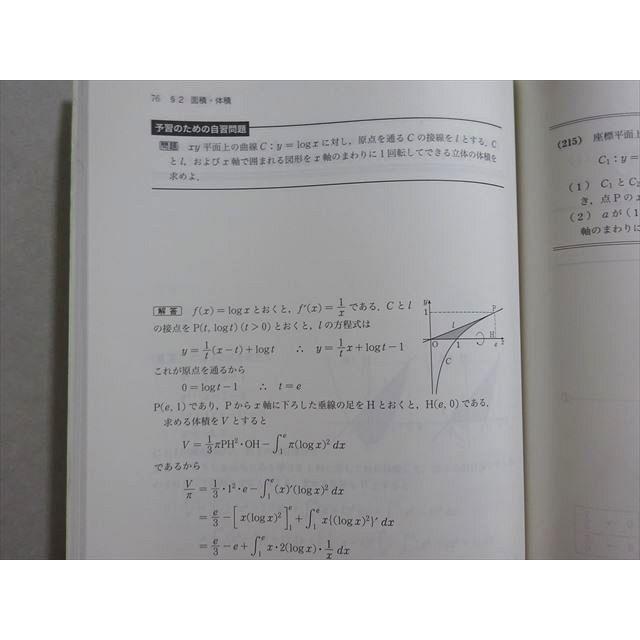 76 §2 面積・体積
予習のための自習問題
問題 xy平面上の曲線C：y=logxに対し，原点を通るCの接線をlとする．C
とl，およびx軸で囲まれる図形をx軸のまわりに1回転してできる立体の体積を
求めよ．
解答 f(x)=logxとおくと，f′(x)=1/xである．Cとl
の接点をP(t, logt)(t>0)とおくと，lの方程式は
y=1/t(x−t)+logt ∴ y=1/t x+logt−1
これが原点を通るから
0=logt−1 ∴ t=e
P(e, 1)であり，Pからx軸に下ろした垂線の足をHとおくと，H(e, 0)である．
求める体積をVとすると
V=1/3πPH²・OH−∫₁ᵉπ(logx)²dx
であるから
V/π=1/3・1²・e−∫₁ᵉ(x)′(logx)²dx
=e/3−[x(logx)²]₁ᵉ+∫₁ᵉx{(logx)²}′dx
=e/3−e+∫₁ᵉx・2(logx)・1/x dx
y
1
l
P
O
1
H
e
C
(215) 座標平面上
C₁：y=
(1) C₁とC
き，点Pのx
(2) aが(1
軸のまわりに